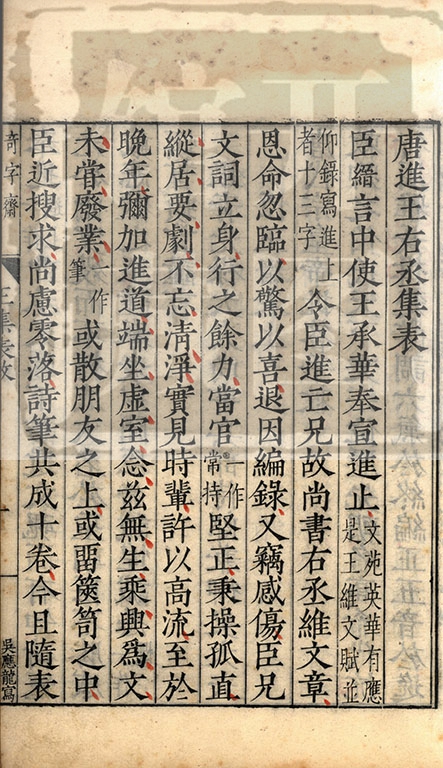 唐進王右丞集表
臣縉言中使王承華奉宣進止文苑英華有應是王維文賦並
仰錄寫進上者十三字令臣進亡兄故尚書右丞維文章
恩命忽臨以驚以喜退因編錄又竊感傷臣兄
文詞立身行之餘力當官一作常持堅正秉操孤直
縱居要劇不忘清淨實見時輩許以高流至於
晚年彌加進道端坐虛室念茲無生乘興爲文
未甞廢業一作筆或散朋友之上或畱篋笥之中
臣近搜求尚慮零落詩筆共成十卷今且隨表
奇字齋
王集表敕
一
吳應龍寫